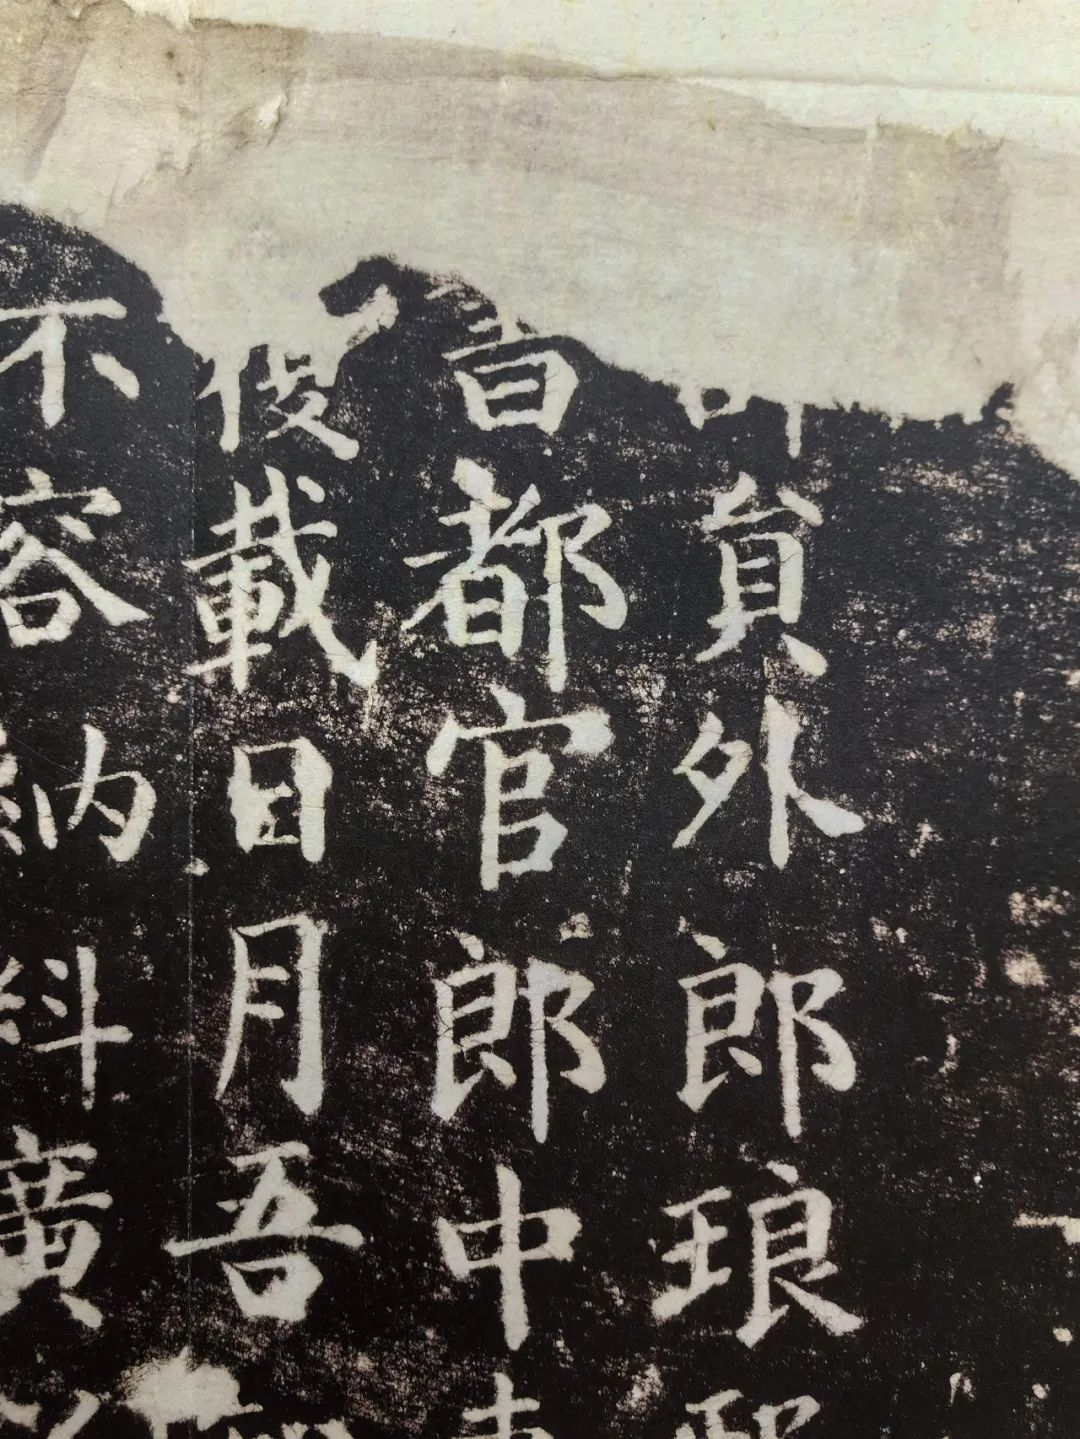 貟外郎琅
都官郎中
俊載日月吾
不容納料廣